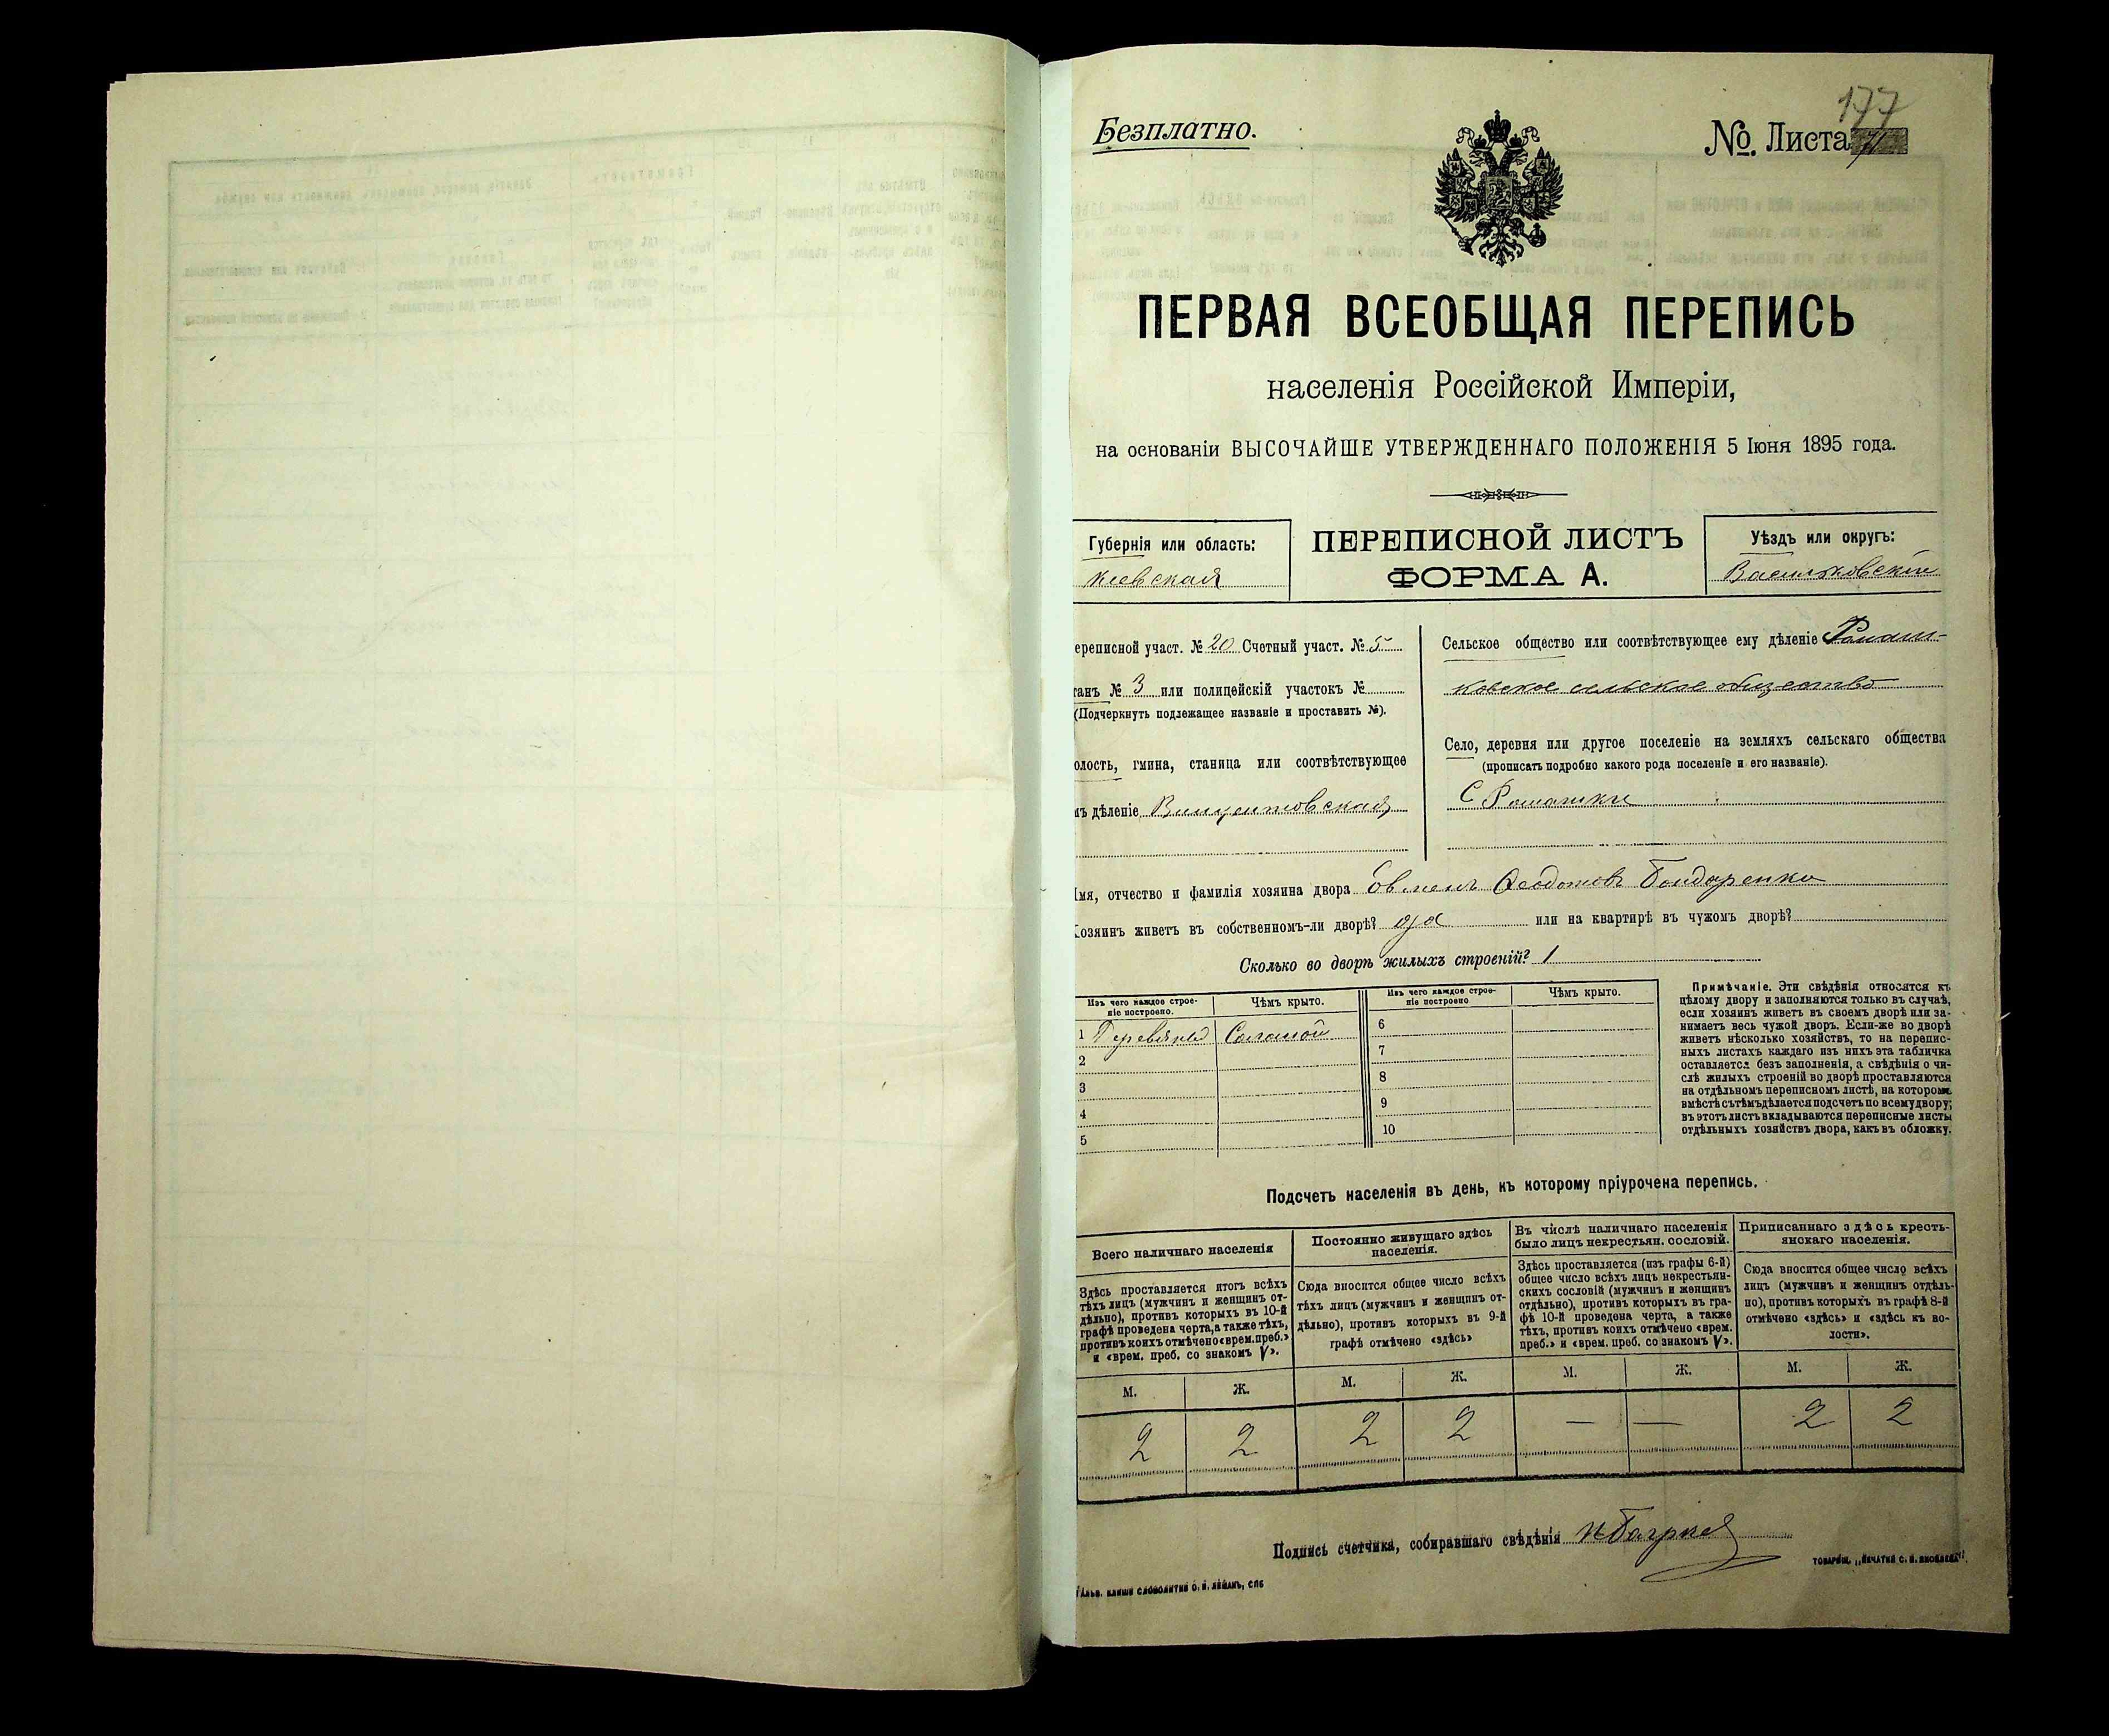 177
Безплатно.
№ Листа
ПЕРВАЯ ВСЕОБЩАЯ ПЕРЕПИСЬ
населенія Россійской Имперіи,
на основаніи ВЫСОЧАЙШЕ УТВЕРЖДЕННАГО ПОЛОЖЕНІЯ 5 Іюня 1895 года.
Губернія или область:
Кіевская
ПЕРЕПИСНОЙ ЛИСТЪ
ФОРМА А.
Уѣздъ или округъ:
Васильковскій
ереписной участ. № 20 Счетный участ. № 5
танъ № 3 или полицейскій участокъ №
(Подчеркнуть подлежащее названіе и проставить №).
олость, гмина, станица или соотвѣтствующее
ъ дѣленіе Винцентовская
Сельское общество или соотвѣтствующее ему дѣленіе Ромаш-
ковское сельское общество
Село, деревня или другое поселеніе на земляхъ сельскаго общества
(прописать подробно какого рода поселеніе и его названіе).
С Ромашки
Имя, отчество и фамилія хозяина двора Феодотовъ Бондаренко
Хозяинъ живетъ въ собственномъ-ли дворѣ? да или на квартирѣ въ чужомъ дворѣ?
Сколько во дворѣ жилыхъ строеній? 1
Изъ чего каждое строе-
ніе построено.
Чѣмъ крыто.
Изъ чего каждое строе-
ніе построено
Чѣмъ крыто.
1 Деревяное Соломой
2
3
4
5
6
7
8
9
10
Примѣчаніе. Эти свѣдѣнія относятся къ
цѣлому двору и заполняются только въ случаѣ,
если хозяинъ живетъ въ своемъ дворѣ или за-
нимаетъ весь чужой дворъ. Если-же во дворѣ
живетъ нѣсколько хозяйствъ, то на перепис-
ныхъ листахъ каждаго изъ нихъ эта табличка
оставляется безъ заполненія, а свѣдѣнія о чи-
слѣ жилыхъ строеній во дворѣ проставляются
на отдѣльномъ переписномъ листѣ, на которомъ
вмѣстѣ съ тѣмъ дѣлается подсчетъ по всему двору;
въ этотъ листъ вкладываются переписные листы
отдѣльныхъ хозяйствъ двора, какъ въ обложку.
Подсчетъ населенія въ день, къ которому пріурочена перепись.
Всего наличнаго населенія
Здѣсь проставляется итогъ всѣхъ
тѣхъ лицъ (мужчинъ и женщинъ от-
дѣльно), противъ которыхъ въ 10-й
графѣ проведена черта, а также тѣхъ,
противъ коихъ отмѣчено «врем. преб.»
и «врем. преб. со знакомъ V».
Постоянно живущаго здѣсь
населенія.
Сюда вносится общее число всѣхъ
тѣхъ лицъ (мужчинъ и женщинъ от-
дѣльно), противъ которыхъ въ 9-й
графѣ отмѣчено «здѣсь»
Въ числѣ наличнаго населенія
было лицъ некрестьян. сословій.
Здѣсь проставляется (изъ графы 6-й)
общее число всѣхъ лицъ некрестьян-
скихъ сословій (мужчинъ и женщинъ
отдѣльно), противъ которыхъ въ гра-
фѣ 10-й проведена черта, а также
тѣхъ, противъ коихъ отмѣчено «врем.
преб.» и «врем. преб. со знакомъ V».
Приписаннаго здѣсь кресть-
янскаго населенія.
Сюда вносится общее число всѣхъ
лицъ (мужчинъ и женщинъ отдѣль-
но), противъ которыхъ въ графѣ 8-й
отмѣчено «здѣсь» и «здѣсь къ во-
лости».
М. Ж. М. Ж. М. Ж. М. Ж.
2 2 2 2 — — 2 2
Подпись счетчика, собиравшаго свѣдѣнія